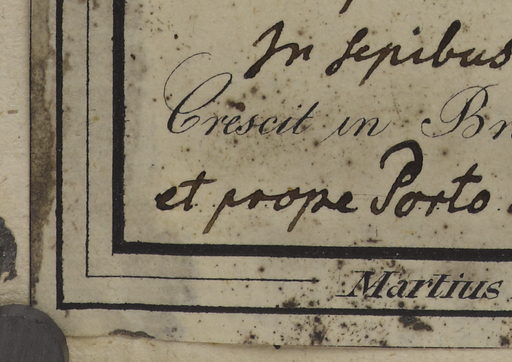 In sepibus
Crescit in Br
et prope Porto
Martius